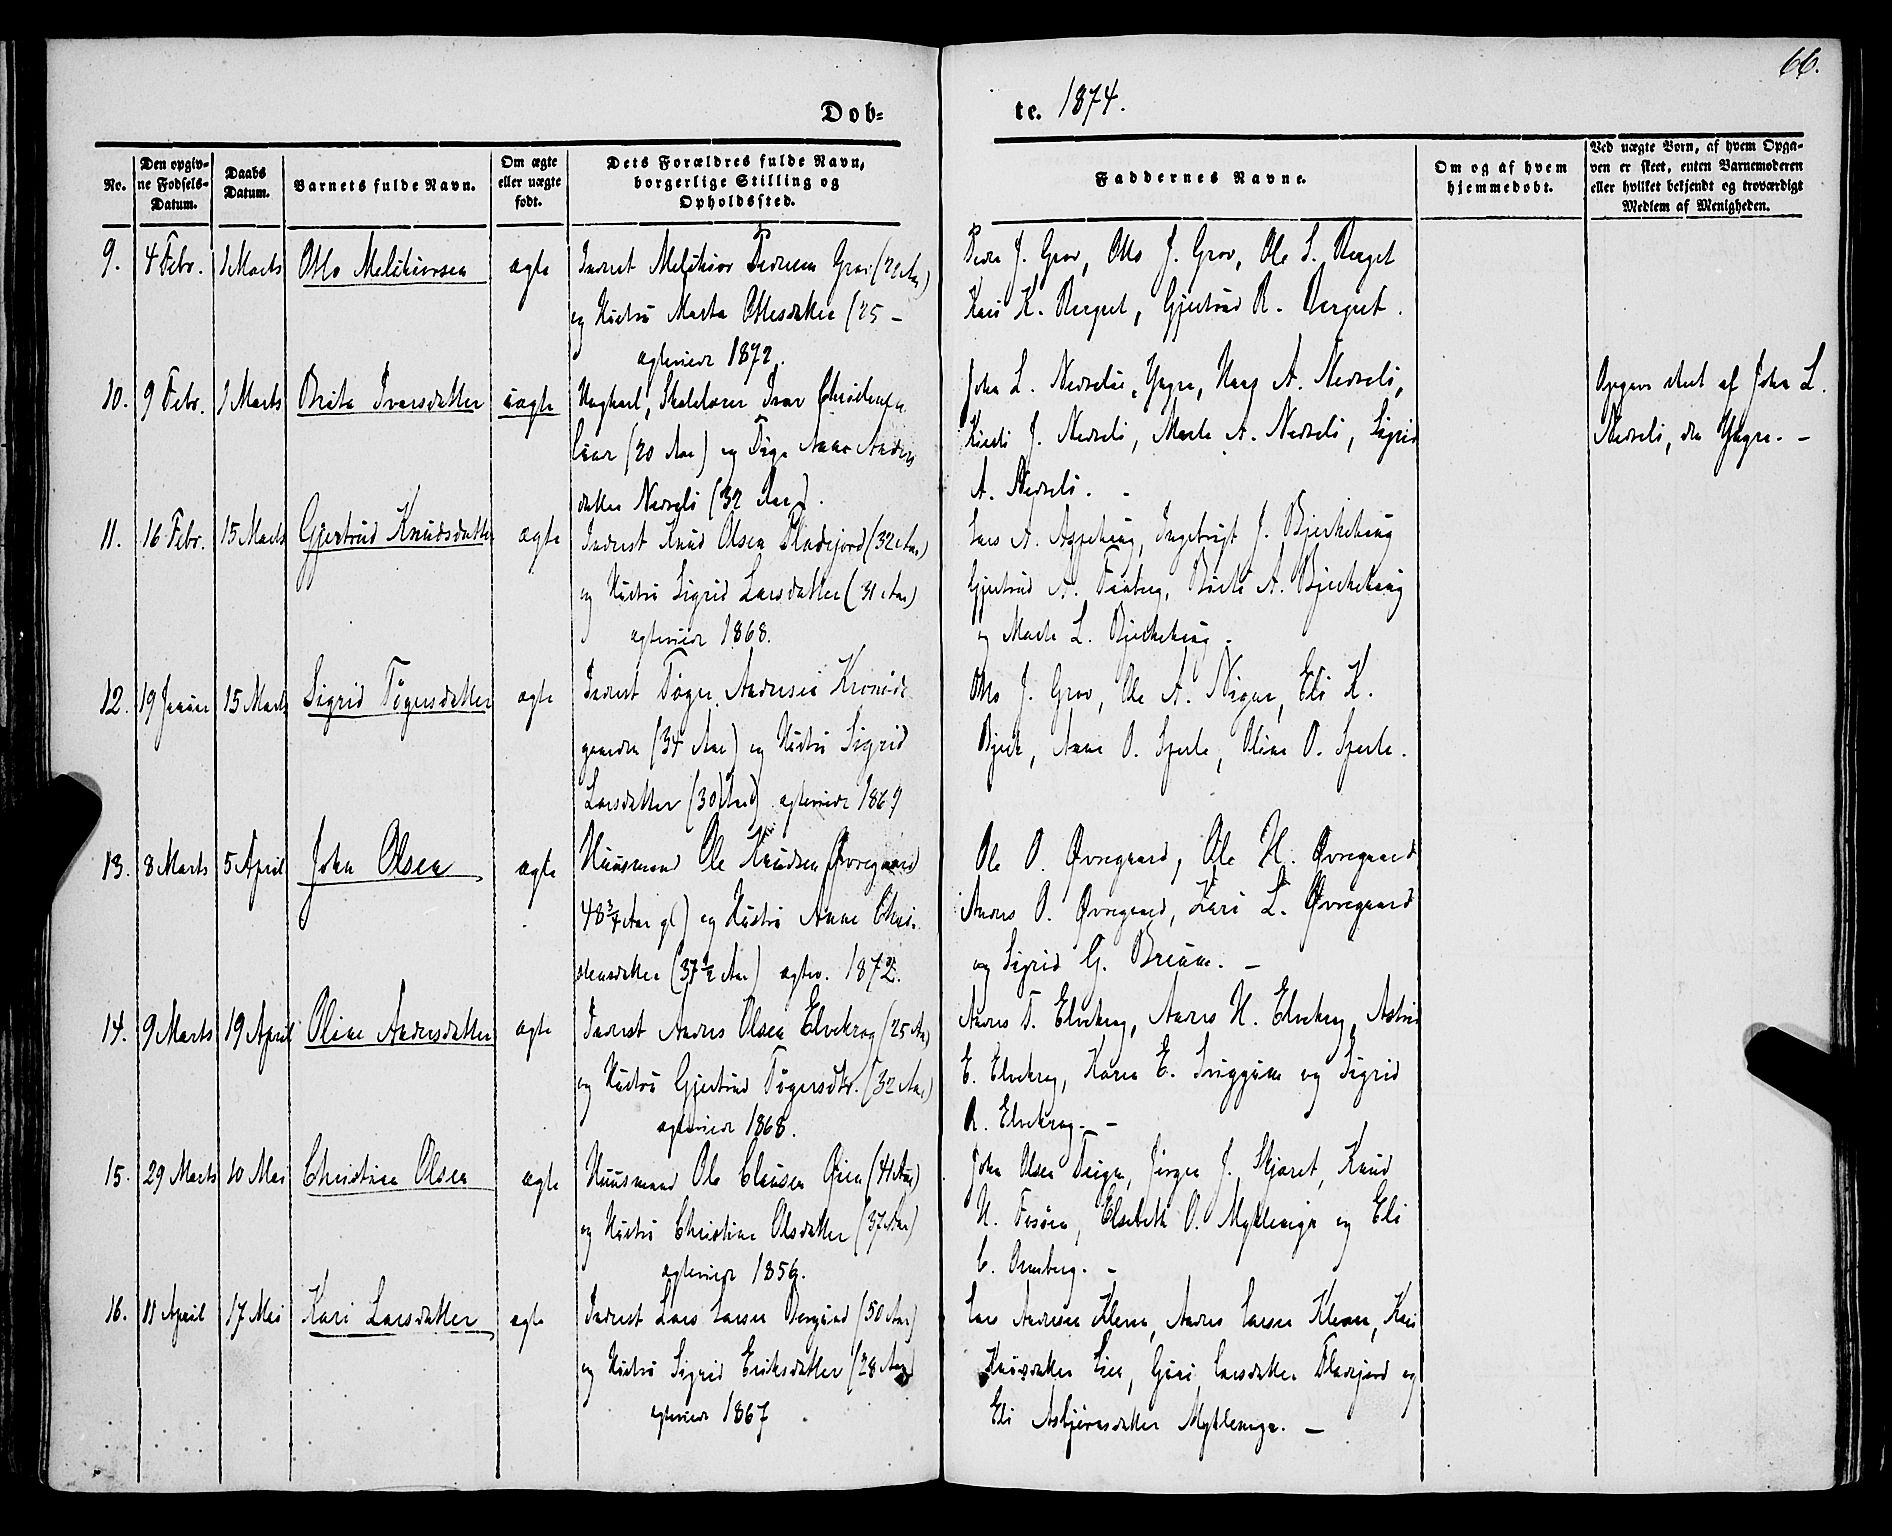 66.
Døb-
te. 1874.
No.
Den opgiv-
ne Fødsels-
Datum.
Daabs
Datum.
Barnets fulde Navn.
Om ægte
eller uægte
født.
Dets Forældres fulde Navn,
borgerlige Stilling og
Opholdssted.
Faddernes Navne.
Om og af hvem
hjemmedøbt.
Ved uægte Børn, af hvem Opga-
ven er skeet, enten Barnemoderen
eller hvilket bekjendt og troværdigt
Medlem af Menigheden.
9. 4 Febr. 1 Marts Otto Melkiorsen ægte Inderst Melkior Pedersen Grov
og Hustru Marta Ottesdatter (25 –
ægteviede 1872.
Peder J. Grov, Otto J. Grov, Ole L. Berget
Kari K. Berget, Gjertrud R. Berget.
10. 9 Febr. 1 Marts Brita Iversdatter uægte Ungkarl, Skolelærer Iver Christensen
Lien (20 Aar) og Pige Anne Anders
datter Nedreli (32 Aar).
John L. Nedreli, Yngre, Hans A. Nedreli,
Kirsti J. Nedreli, Marte A. Nedreli, Sigrid
A. Nedreli. –
Opgave skeet af John L.
Nedreli, den Yngre. –
11. 16 Febr. 15 Marts Gjertrud Knudsdatter ægte Inderst Knud Olsen Fladejord (32 Aar)
og Hustru Sigrid Larsdatter (31 Aar)
ægteviede 1868.
Lars A. Bjerkehaug
Gjertrud A. Faaberg, A. Bjerkehaug
og Marte L. Bjerkehaug.
12. 19 Januar 15 Marts Sigrid Tøgersdatter ægte Inderst Tøger Andersen
(34 Aar) og Hustru Sigrid
Larsdatter (30 Aar) ægteviede 1869
Otto J. Grov, Ole A. Eli K.
Bjerk, Anne O. Sperle, Oline O. Sperle.
13. 8 Marts 5 April John Olsen ægte Huusmand Ole Knudsen Øvregaard
48 3/4 Aar gl) og Hustru Anne Chri-
stensdatter (37 1/2 Aar) ægtev. 1872.
Ole O. Øvregaard, Ole H. Øvregaard
Anders O. Øvregaard, Kari L. Øvregaard
og Sigrid G. Bruum. –
14. 9 Marts 19 April Oline Andersdatter ægte Inderst Anders Olsen Elvekrog (25 Aar)
og Hustru Gjertrud Tøgersdtr. (32 Aar)
ægteviede 1868.
Anders T. Elvekrog, Anders H. Elvekrog, Astrid
E. Elvekrog, Karen E. Sviggum og Sigrid
R. Elvekrog. –
15. 29 Marts 10 Mai Christian Olsen ægte Huusmand Ole Clausen Øien (41 Aar)
og Hustru Christine Olsdatter (37 Aar)
ægteviede 1856.
John Olsen Teigen, Jørgen J. Skjæret, Knud
H. Elsebeth O. Myklemyr og Eli
C. Ormberg. –
16. 11 April 17 Mai Kari Larsdatter ægte Inderst Lars Larsen (50 Aar)
og Hustru Sigrid Eriksdatter (28 Aar)
ægteviede 1867
Lars Andersen Kleven, Anders Larsen Kleven, Kari
Knudsdatter Lien, Guri Larsdatter Fladejord og
Eli Asbjørnsdatter Myklemyr. –